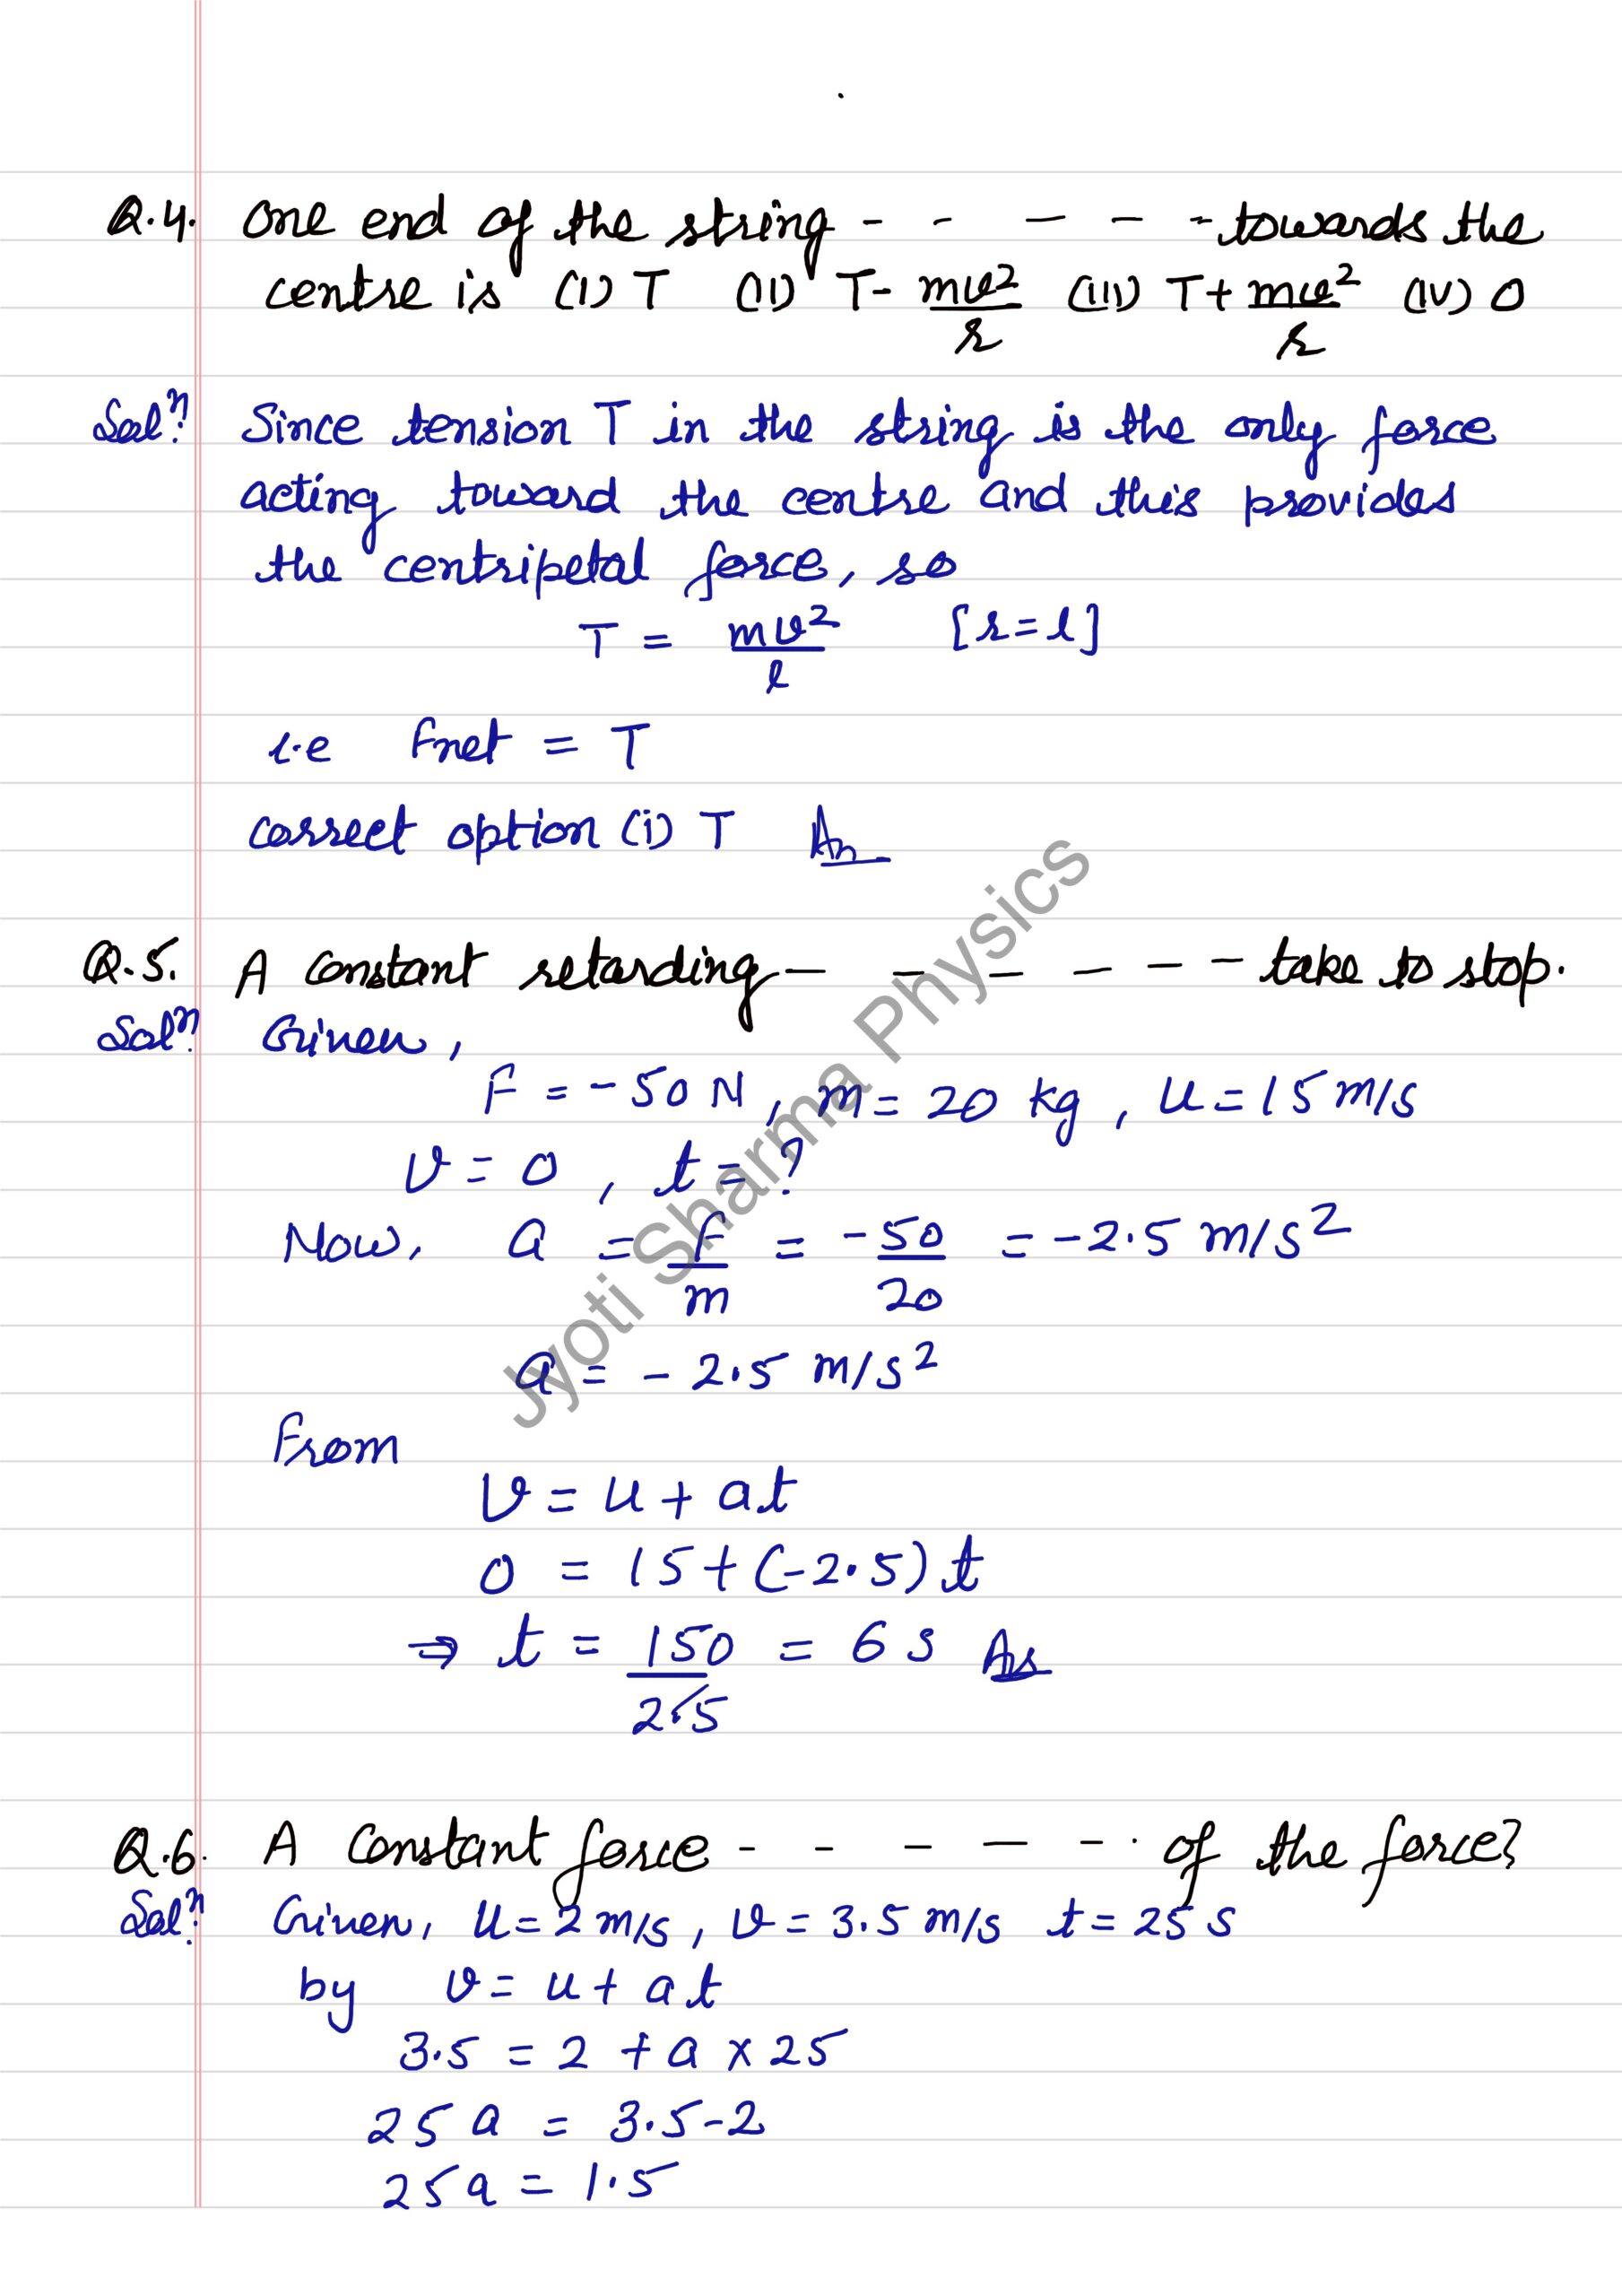 Q.4. One end of the string - - - - - towards the
centre is (i) T (ii) T - mv²/r (iii) T + mv²/r (iv) 0
Solⁿ. Since tension T in the string is the only force
acting toward the centre and this provides
the centripetal force, so
T = mv²/l [r = l]
i.e Fnet = T
correct option (i) T An
Q.5. A constant retarding - - - - - - take to stop.
Solⁿ. Given,
F = -50 N, m = 20 kg, u = 15 m/s
v = 0, t = ?
Now, a = F/m = -50/20 = -2.5 m/s²
a = -2.5 m/s²
From
v = u + at
0 = 15 + (-2.5) t
⇒ t = 150/2.5 = 6 s As
Q.6. A constant force - - - - - . of the force?
Solⁿ. Given, u = 2 m/s, v = 3.5 m/s t = 25 s
by v = u + at
3.5 = 2 + a × 25
25 a = 3.5 - 2
25 a = 1.5
Jyoti Sharma Physics